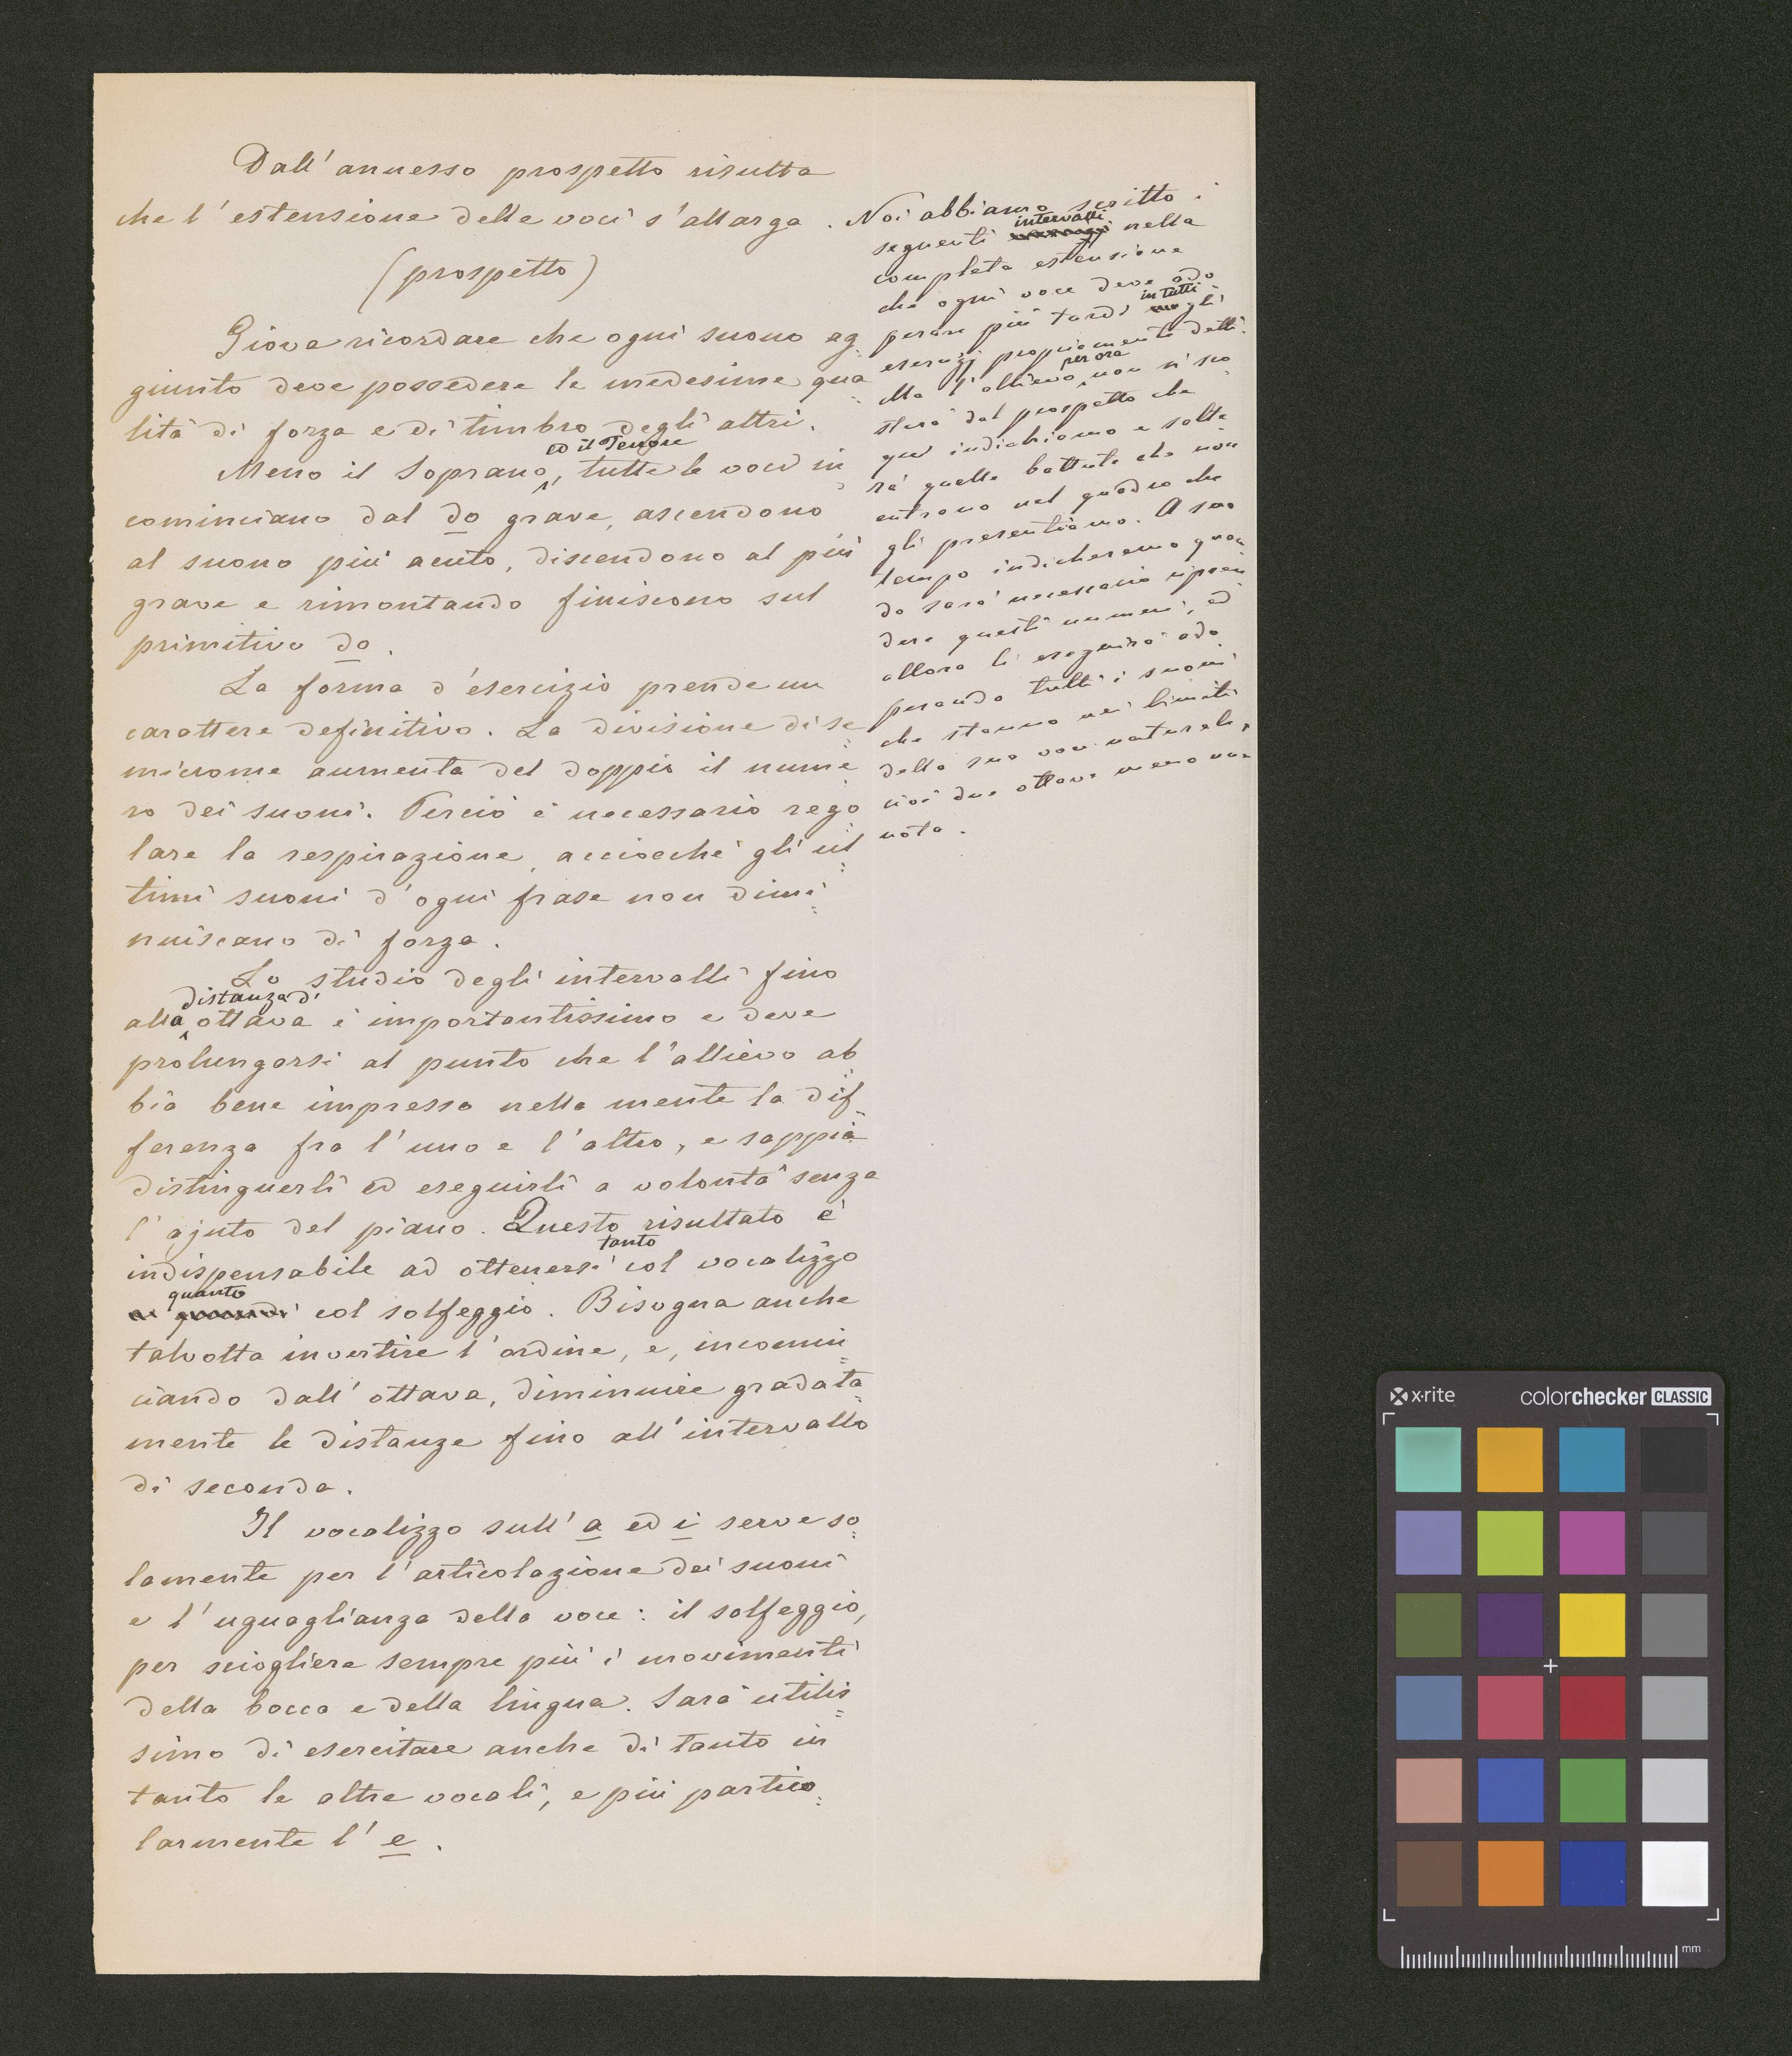 Dall'annesso prospetto risulta
che l'estensione delle voci s'allarga.
(prospetto)
Giova ricordare che ogni suono ag=
giunto deve possedere le medesime qua=
lità di forza e di timbro degli altri.
ed il Tenore
Meno il Soprano, tutte le voci in=
cominciano dal do grave, ascendono
al suono più acuto, discendono al più
grave e rimontando finiscono sul
primitivo do.
La forma d'esercizio prende un
carattere definitivo. La divisione di se=
microme aumenta del doppio il nume=
ro dei suoni. Perciò è necessario rego=
lare la respirazione, acciocché gli ul=
timi suoni d'ogni frase non dimi=
nuiscano di forza.
Lo studio degli intervalli fino
distanza di
alla ottava è importantissimo e deve
prolungarsi al punto che l'allievo ab=
bia bene impresso nella mente la dif=
ferenza fra l'uno e l'altro, e sappia
distinguerli ed eseguirli a volontà senza
l'ajuto del piano. Questo risultato è
tanto
indispensabile ad ottenersi col vocalizzo
quanto
col solfeggio. Bisogna anche
talvolta invertire l'ordine, e, incomin=
ciando dall'ottava, diminuire gradata=
mente le distanze fino all'intervallo
di seconda.
Il vocalizzo sull'a ed i serve so=
lamente per l'articolazione dei suoni
e l'uguaglianza della voce: il solfeggio,
per sciogliere sempre più i movimenti
della bocca e della lingua. Sarà utilis=
simo di esercitare anche di tanto in
tanto le altre vocali, e più partico=
larmente l'e.
Noi abbiamo scritto i
intervalli
seguenti nella
completa estensione
che ogni voce deve ado=
in tutti
perare più tardi gli
esercizj propriamente detti.
per ora
Ma l'allievo non si sco=
sterà dal prospetto che
qui indichiamo e salte=
rà quelle battute che non
entrano nel quadro che
gli presentiamo. A suo
tempo indicheremo quan=
do sarà necessario ripren=
dere questi numeri, ed
allora li eseguirà ado=
perando tutti i suoni
che stanno nei limiti
della sua voce naturale,
cioè due ottave meno una
nota.
x·rite
colorchecker CLASSIC
mm